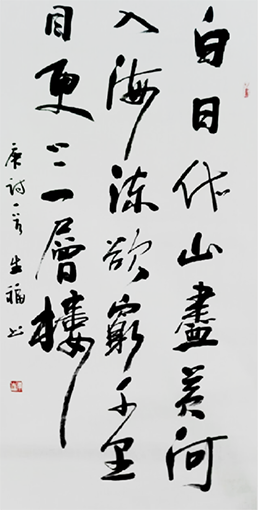 白日依山盡黄河
入海流欲窮千里
目更上一層樓
唐诗一首 生福书